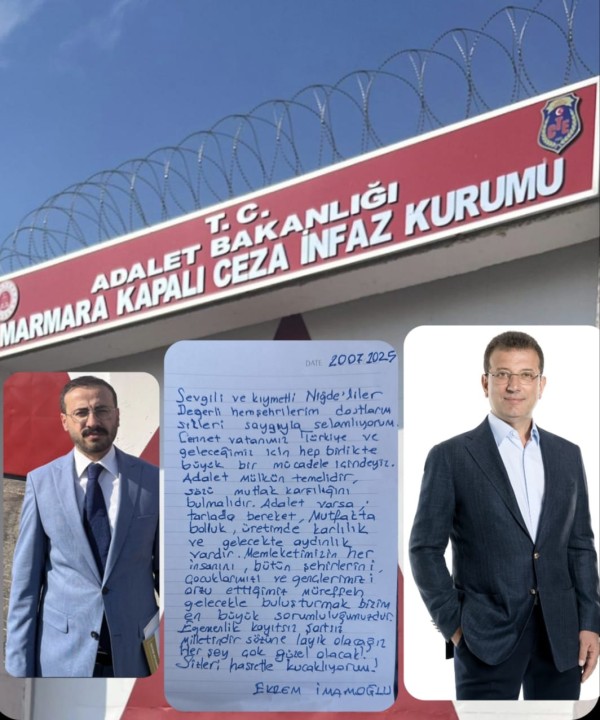 T. C.
ADALET BAKANLIĞI
MARMARA KAPALI CEZA İNFAZ KURUMU
DATE 20.07.2025
Sevgili ve kıymetli Niğde'liler
Değerli hemşehrilerim dostlarım
sizleri saygıyla selamlıyorum.
Cennet vatanımız Türkiye ve
geleceğimiz için hep birlikte
büyük bir mücadele içindeyiz.
Adalet mülkün temelidir,
sözü mutlak karşılığını
bulmalıdır. Adalet varsa;
tarlada bereket, Mutfakta
bolluk, üretimde karlılık
ve gelecekte aydınlık
vardır. Memleketimizin her
insanını, bütün şehirlerini,
çocuklarımızı ve gençlerimizi
arzu ettiğimiz müreffeh
gelecekle buluşturmak bizim
en büyük sorumluluğumuzdur.
Egemenlik kayıtsız şartsız
Milletindir sözüne layık olacağız
Her şey çok güzel olacak!
Sizleri hasretle kucaklıyorum!
EKREM İMAMOĞLU